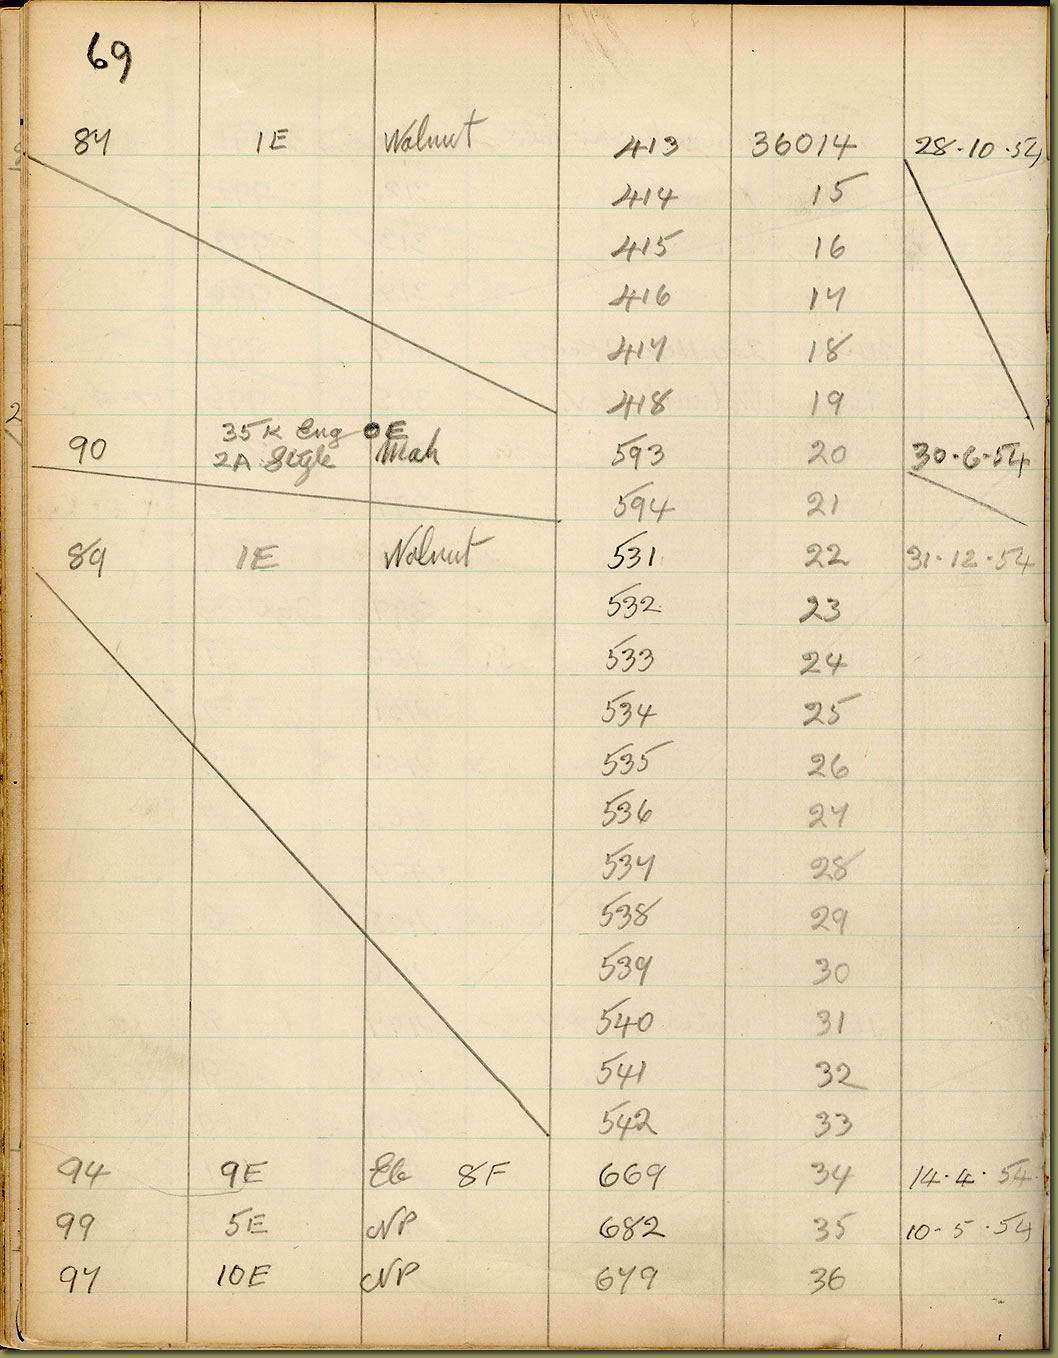 69
87 1E Walnut 413 36014 28·10·54
414 15
415 16
416 17
417 18
418 19
35K Eng OE
90 2A Style Mah 593 20 30·6·54
594 21
89 1E Walnut 531 22 31·12·54
532 23
533 24
534 25
535 26
536 27
537 28
538 29
539 30
540 31
541 32
542 33
94 9E Eb 8F 669 34 14·4·54
99 5E NP 682 35 10·5·54
97 10E NP 679 36